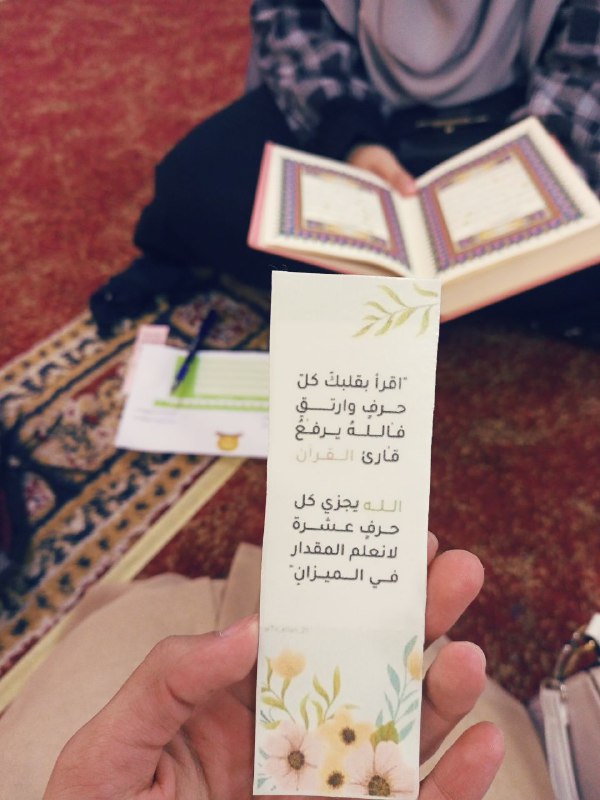 "اقرأ بقلبكَ كلّ
حـرفٍ وارتــــقِ
فـاللـهُ يـرفـعُ
قارئ الـقـرآن
الله يجزي كل
حـرفٍ عـشـرة
لانعلم المقدار
فـي الـــميـزانِ"